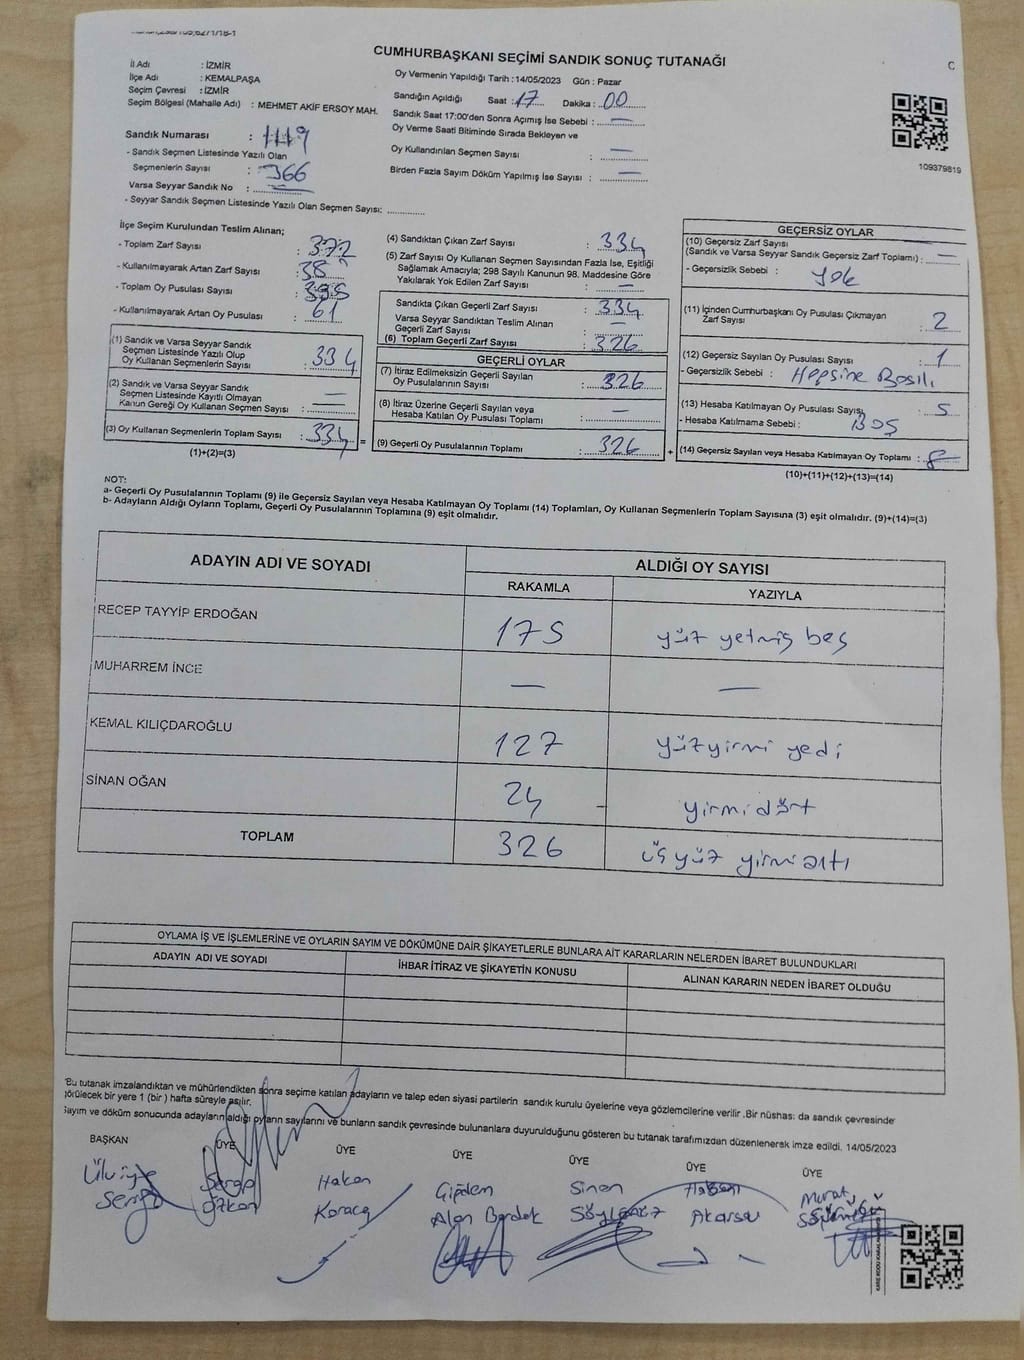 CUMHURBAŞKANI SEÇİMİ SANDIK SONUÇ TUTANAĞI
C
İl Adı : İZMİR
İlçe Adı : KEMALPAŞA
Seçim Çevresi : İZMİR
Seçim Bölgesi (Mahalle Adı) : MEHMET AKİF ERSOY MAH.
Sandık Numarası : 1119
- Sandık Seçmen Listesinde Yazılı Olan
Seçmenlerin Sayısı : 366
Varsa Seyyar Sandık No : —
- Seyyar Sandık Seçmen Listesinde Yazılı Olan Seçmen Sayısı:
Oy Vermenin Yapıldığı Tarih : 14/05/2023 Gün : Pazar
Sandığın Açıldığı Saat : 17 Dakika : 00
Sandık Saat 17:00'den Sonra Açımış İse Sebebi : —
Oy Verme Saati Bitiminde Sırada Bekleyen ve
Oy Kullandırılan Seçmen Sayısı : —
Birden Fazla Sayım Döküm Yapılmış İse Sayısı : —
109379819
İlçe Seçim Kurulundan Teslim Alınan;
- Toplam Zarf Sayısı : 372
- Kullanılmayarak Artan Zarf Sayısı : 38
- Toplam Oy Pusulası Sayısı : 395
- Kullanılmayarak Artan Oy Pusulası : 61
(1) Sandık ve Varsa Seyyar Sandık
Seçmen Listesinde Yazılı Olup
Oy Kullanan Seçmenlerin Sayısı : 334
(2) Sandık ve Varsa Seyyar Sandık
Seçmen Listesinde Kayıtlı Olmayan
Kanun Gereği Oy Kullanan Seçmen Sayısı : —
(3) Oy Kullanan Seçmenlerin Toplam Sayısı : 334 =
(1)+(2)=(3)
(4) Sandıktan Çıkan Zarf Sayısı : 334
(5) Zarf Sayısı Oy Kullanan Seçmen Sayısından Fazla İse, Eşitliği
Sağlamak Amacıyla; 298 Sayılı Kanunun 98. Maddesine Göre
Yakılarak Yok Edilen Zarf Sayısı : —
Sandıkta Çıkan Geçerli Zarf Sayısı : 334
Varsa Seyyar Sandıktan Teslim Alınan
Geçerli Zarf Sayısı : —
(6) Toplam Geçerli Zarf Sayısı : 326
GEÇERLİ OYLAR
(7) İtiraz Edilmeksizin Geçerli Sayılan
Oy Pusulalarının Sayısı : 326
(8) İtiraz Üzerine Geçerli Sayılan veya
Hesaba Katılan Oy Pusulası Toplamı : —
(9) Geçerli Oy Pusulalarının Toplamı : 326 +
GEÇERSİZ OYLAR
(10) Geçersiz Zarf Sayısı
(Sandık ve Varsa Seyyar Sandık Geçersiz Zarf Toplamı) : —
- Geçersizlik Sebebi : Yok
(11) İçinden Cumhurbaşkanı Oy Pusulası Çıkmayan
Zarf Sayısı : 2
(12) Geçersiz Sayılan Oy Pusulası Sayısı : 1
- Geçersizlik Sebebi : Hepsine Basılı
(13) Hesaba Katılmayan Oy Pusulası Sayısı : 5
- Hesaba Katılmama Sebebi : BOŞ
(14) Geçersiz Sayılan veya Hesaba Katılmayan Oy Toplamı : 8
(10)+(11)+(12)+(13)=(14)
NOT:
a- Geçerli Oy Pusulalarının Toplamı (9) ile Geçersiz Sayılan veya Hesaba Katılmayan Oy Toplamı (14) Toplamları, Oy Kullanan Seçmenlerin Toplam Sayısına (3) eşit olmalıdır. (9)+(14)=(3)
b- Adayların Aldığı Oyların Toplamı, Geçerli Oy Pusulalarının Toplamına (9) eşit olmalıdır.
ADAYIN ADI VE SOYADI ALDIĞI OY SAYISI
RAKAMLA YAZIYLA
RECEP TAYYİP ERDOĞAN 175 yüz yetmiş beş
MUHARREM İNCE — —
KEMAL KILIÇDAROĞLU 127 yüzyirmi yedi
SİNAN OĞAN 24 yirmidört
TOPLAM 326 üçyüz yirmialtı
OYLAMA İŞ VE İŞLEMLERİNE VE OYLARIN SAYIM VE DÖKÜMÜNE DAİR ŞİKAYETLERLE BUNLARA AİT KARARLARIN NELERDEN İBARET BULUNDUKLARI
ADAYIN ADI VE SOYADI İHBAR İTİRAZ VE ŞİKAYETİN KONUSU ALINAN KARARIN NEDEN İBARET OLDUĞU
Bu tutanak imzalandıktan ve mühürlendikten sonra seçime katılan adayların ve talep eden siyasi partilerin sandık kurulu üyelerine veya gözlemcilerine verilir .Bir nüshası da sandık çevresinde
görülecek bir yere 1 (bir) hafta süreyle asılır.
Sayım ve döküm sonucunda adayların aldığı oyların sayılarını ve bunların sandık çevresinde bulunanlara duyurulduğunu gösteren bu tutanak tarafımızdan düzenlenerek imza edildi. 14/05/2023
BAŞKAN ÜYE ÜYE ÜYE ÜYE ÜYE ÜYE
Ülviye Serap Hakan Çiğdem Sinan Hasan Murat
Özkan Karaca Alan Bardak Söylemez Akarsu